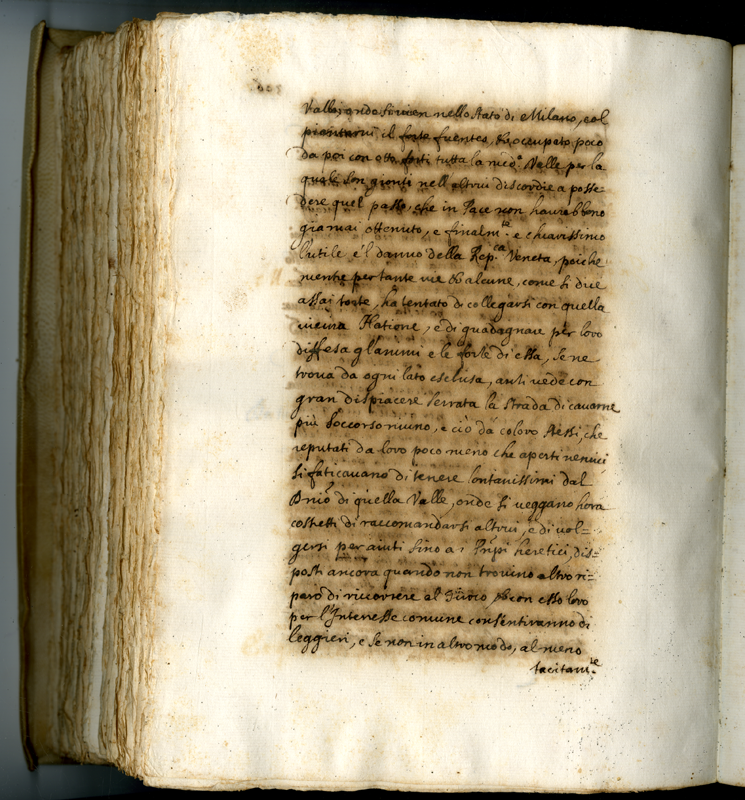 nello stato di Milano, e col
piantarui il forte fuentes, ho occupato poco
da poi con otto forti tutta la med.ª Valle per la
quale son gionti nell altrui discordie a posse=
dere quel passo, che in Pace non haurebbono
giamai ottenuto, e finalm.te e chiarissimo
l'utile e'l danno della Rep.ca Veneta, poiche
mentre per tante uie ho alcune, come si dice
assai torte, ha tentato di collegarsi con quella
uicina Natione, e di guadagnare per loro
diffesa gl'animi e le forze di essa, se ne
troua da ogni lato esclusa, anzi uede con
gran dispiacere serrata la strada di cauarne
più soccorso niuno, e ciò da coloro stessi, che
reputati da loro poco meno che aperti nemici
si faticauano di tenere lontanissimi dal
Dnio di quella Valle, onde si ueggano hora
costretti di raccomandarsi altrui, e di uol=
gersi per aiuti sino a i Prnpi heretici, dis=
posti ancora quando non trouino altro ri=
paro di ricorrere al Turco, ho con esso loro
per l'Interesse comune consentiranno di
leggieri, e se non in altro modo, al meno
tacitam.te